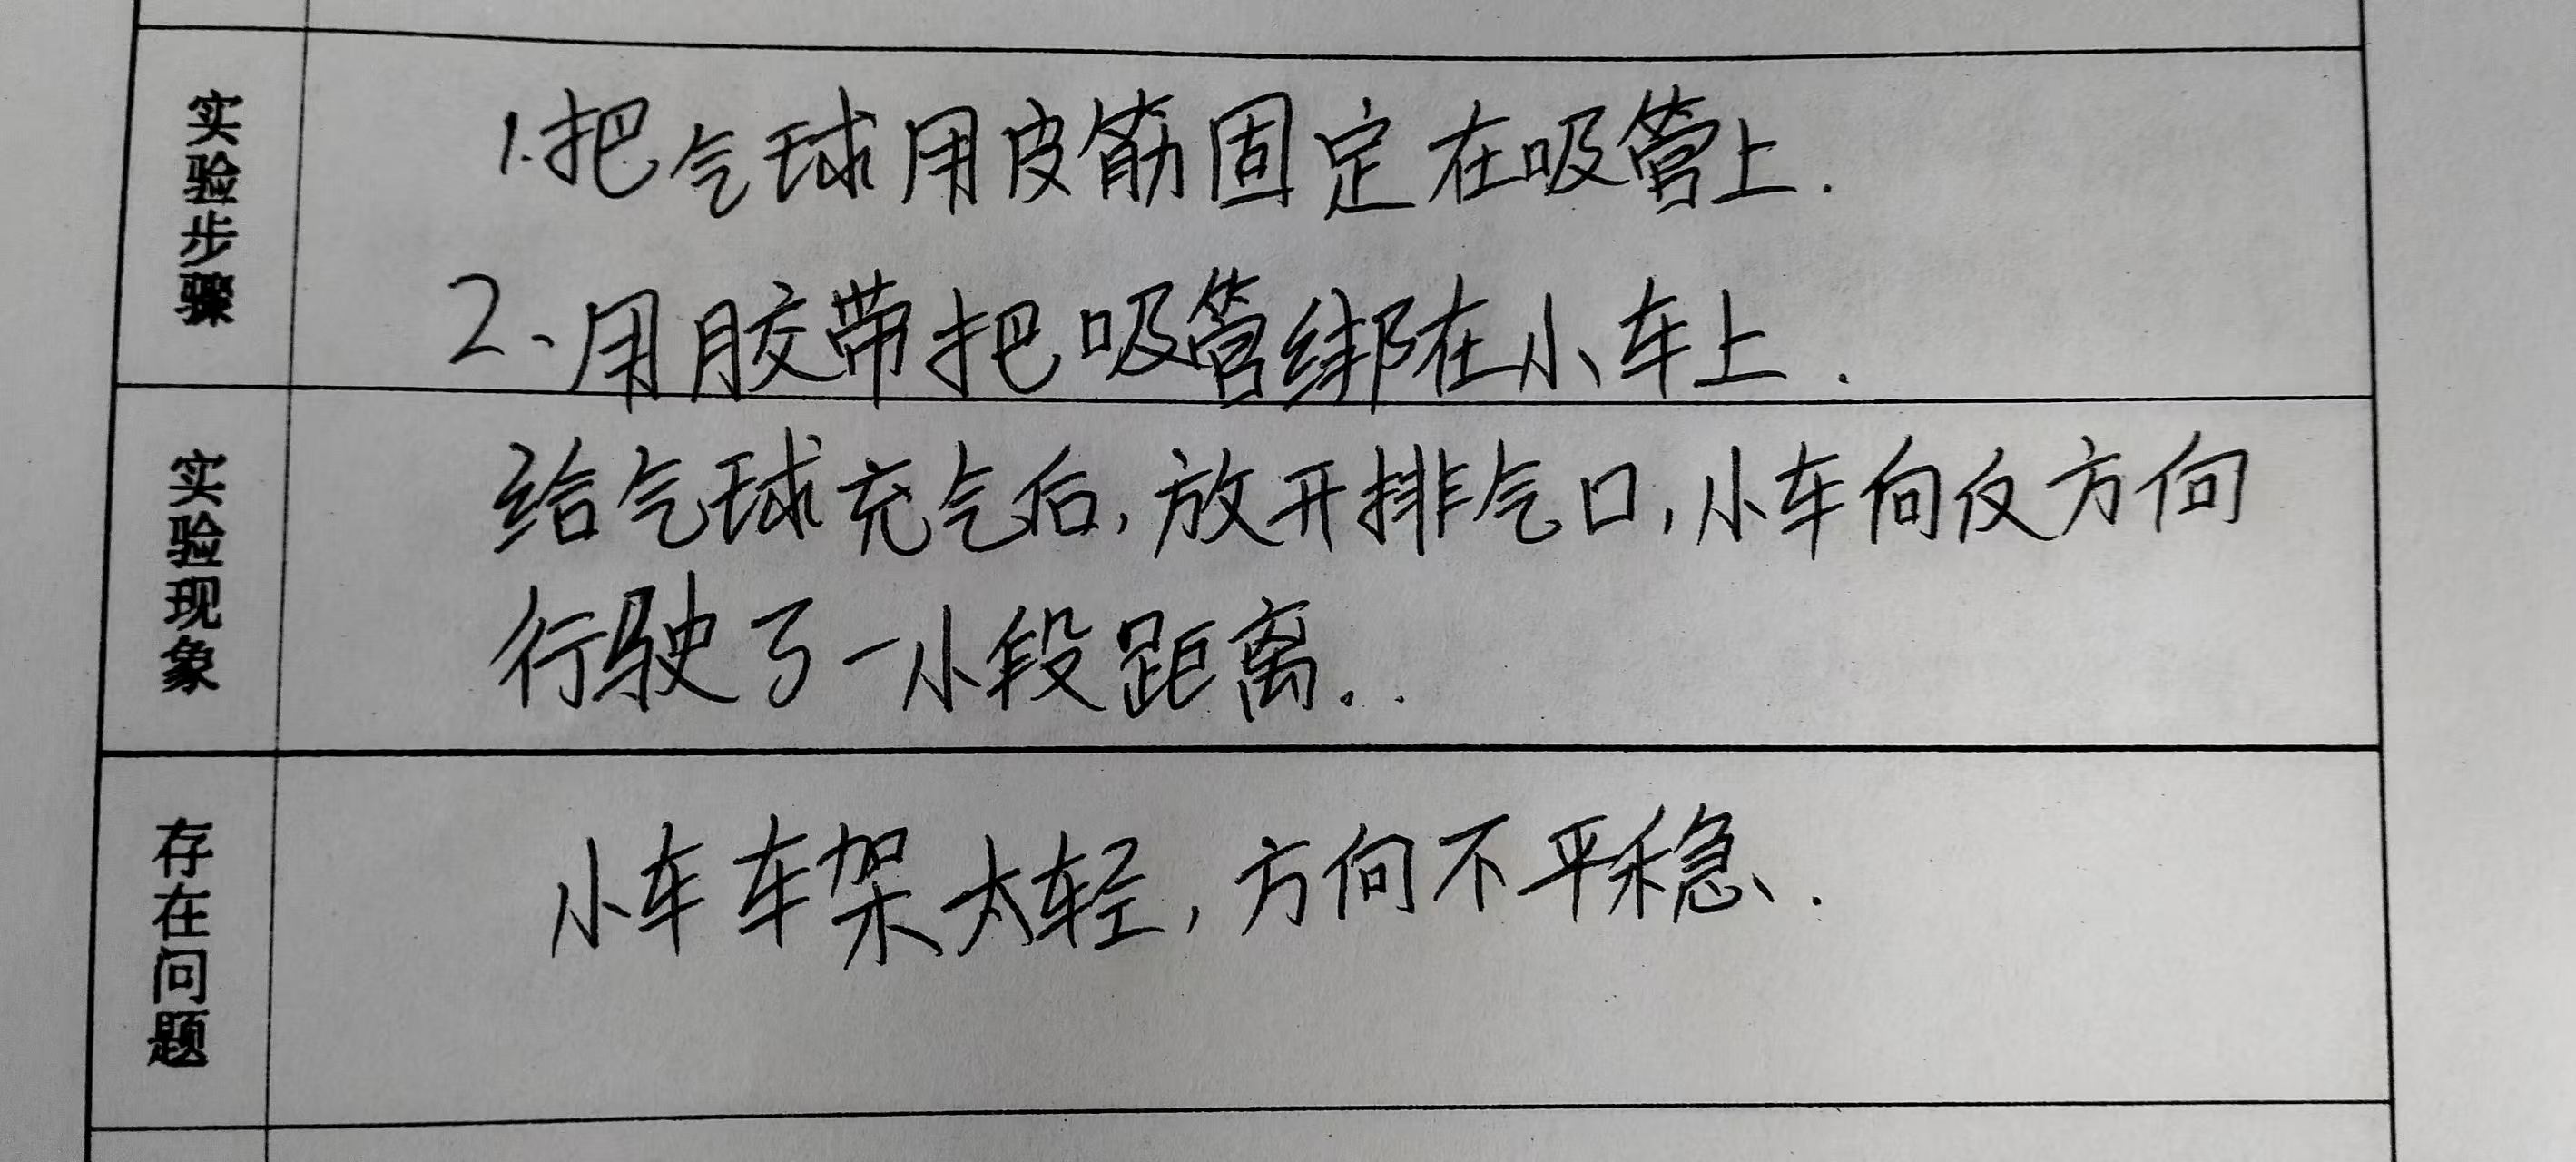 实验步骤
1.把气球用皮筋固定在吸管上.
2、用胶带把吸管绑在小车上.
实验现象
给气球充气后,放开排气口,小车向反方向
行驶了一小段距离..
存在问题
小车车架太轻,方向不平稳、.